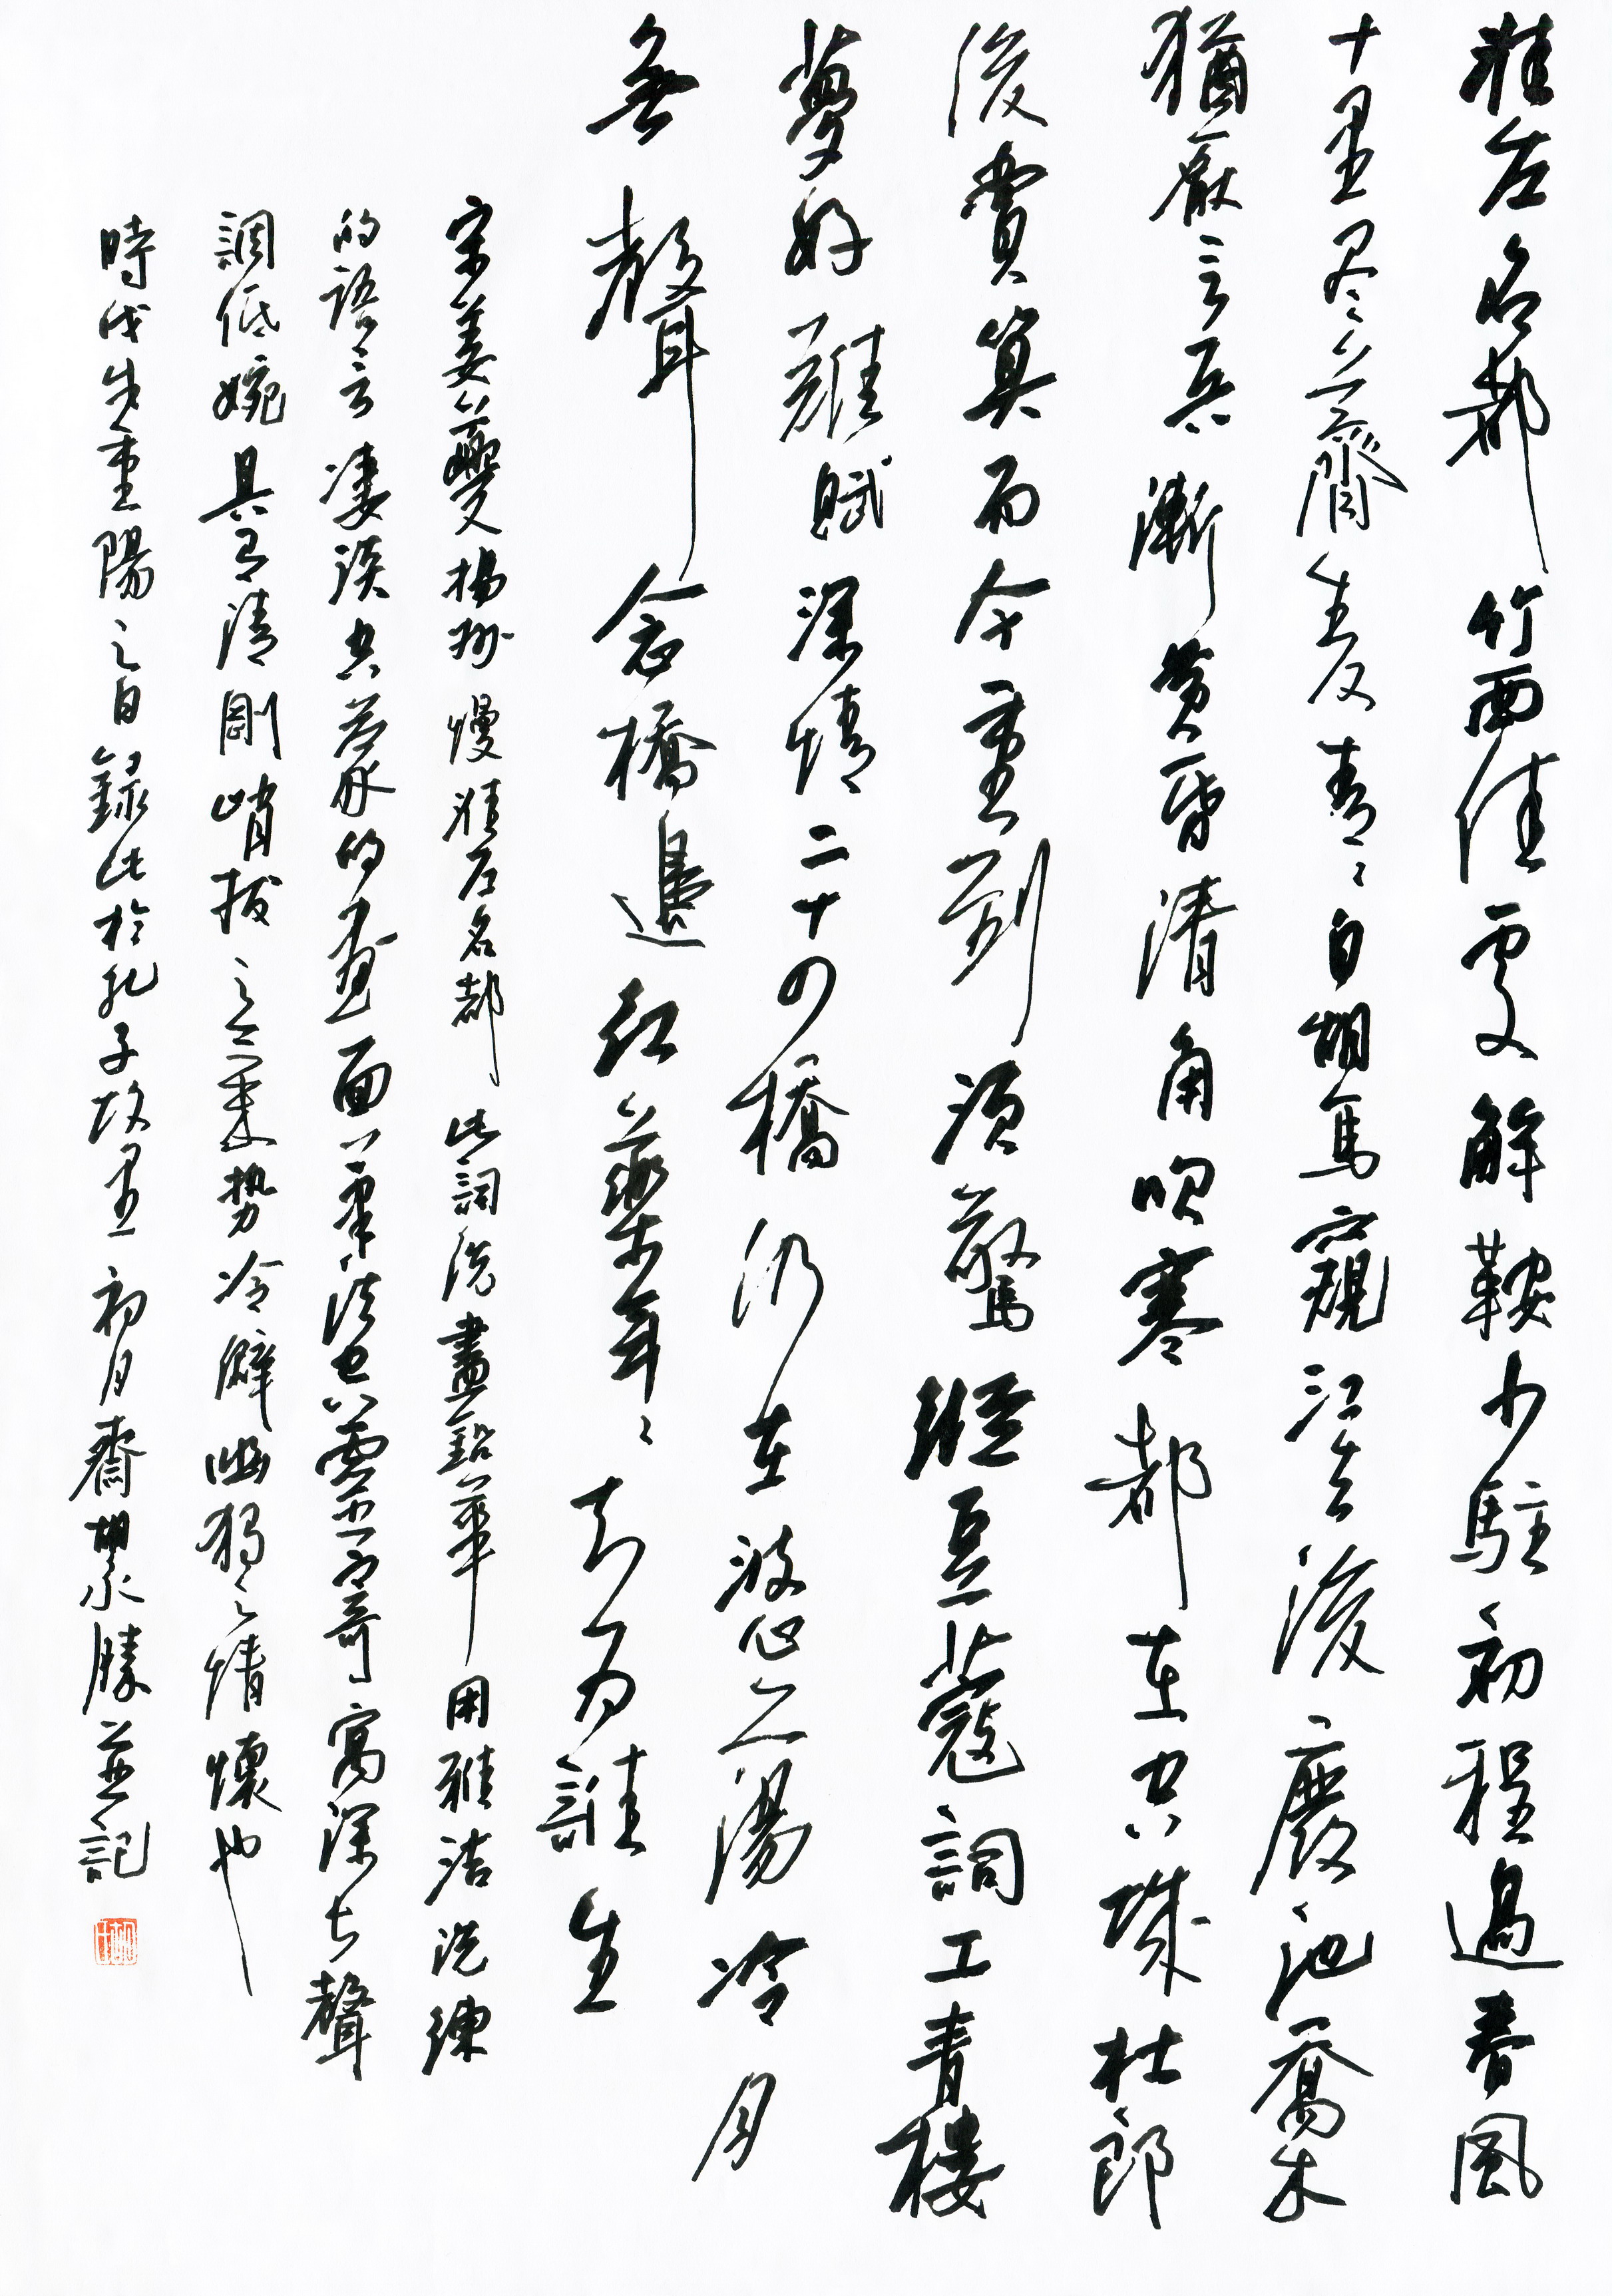 淮左名都竹西佳處解鞍少駐初程過春風
十里尽薺麦青々自胡馬窺江去後廢池喬木
猶厭言兵漸黄昏清角吹寒都在空城杜郎
俊賞算而今重到須驚縱豆蔻詞工青樓
夢好難賦深情二十四橋仍在波心蕩冷月
無聲念橋邊紅藥年々知为誰生
宋姜夔揚州慢淮左名都此詞洗盡鉛華用雅洁洗練
的語言凄淡空蒙的畫面筆法空靈寄寓深長聲
調低婉具有清剛峭拔之氣势冷僻幽獨之情懷也
時重陽之日録此於孔子故里初月齋胡勝並記